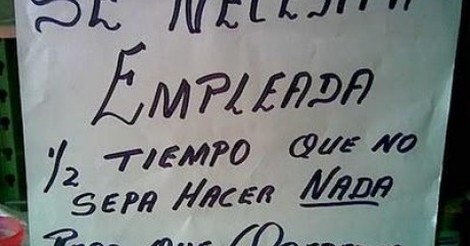 SE NECESITA
EMPLEADA
1/2 TIEMPO QUE NO
SEPA HACER NADA
PERO QUE